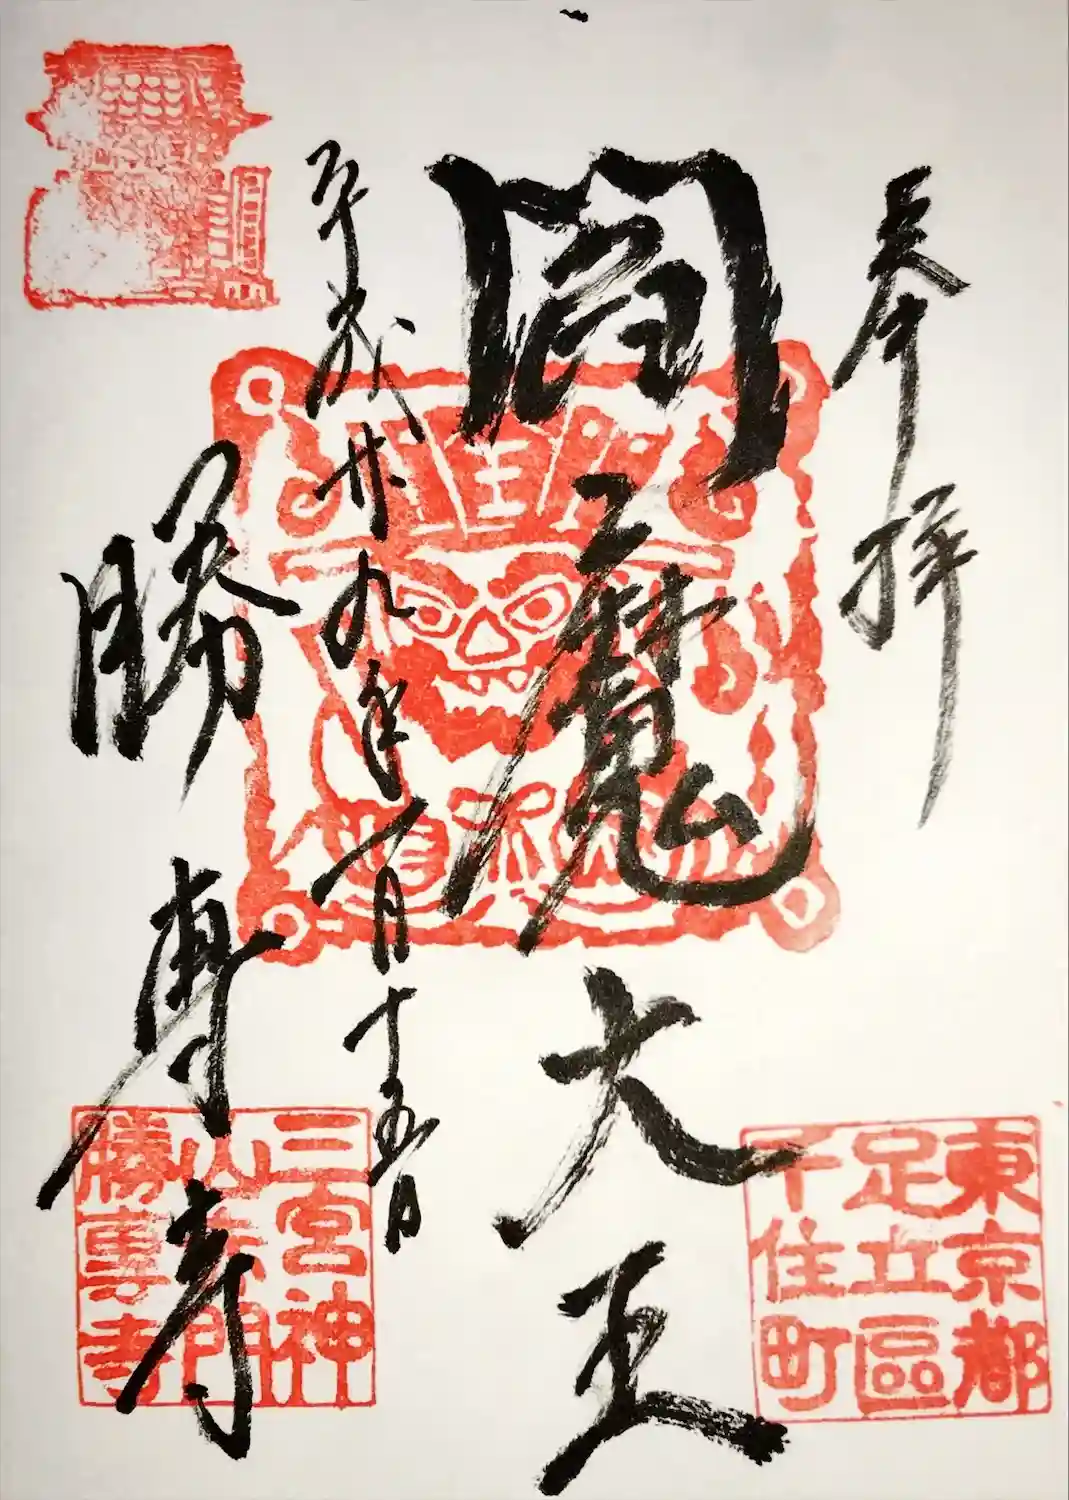 奉拝
閻魔大王
平成廿九年一月十五日
勝専寺
王
東京都
足立區
千住町
三宮神
山赤門
勝専寺